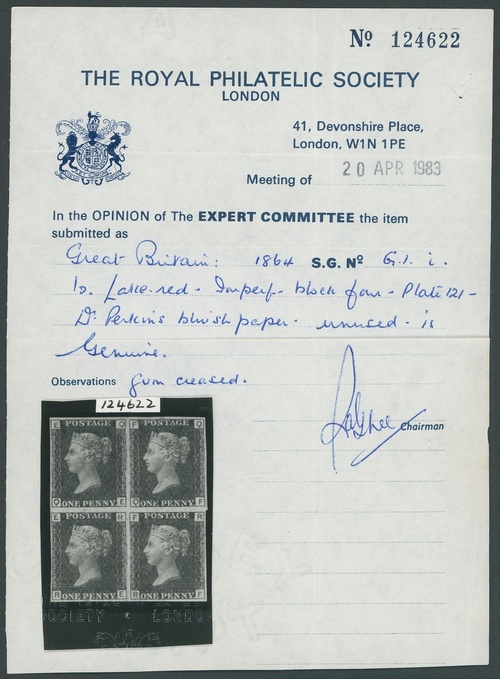 Nº 124622
THE ROYAL PHILATELIC SOCIETY
LONDON
41, Devonshire Place,
London, W1N 1PE
Meeting of 20 APR 1983
In the OPINION of The EXPERT COMMITTEE the item
submitted as
Great Britain: 1864 S.G. Nº G.1. i.
1d. Lake-red - Imperf - block four - Plate 121 -
Dr Perkins bluish paper - unused - is
Genuine.
Observations gum creased.
Chairman
124622
E POSTAGE Q F POSTAGE Q
Q ONE PENNY E Q ONE PENNY F
E POSTAGE R F POSTAGE R
R ONE PENNY E R ONE PENNY F
SOCIETY LONDON